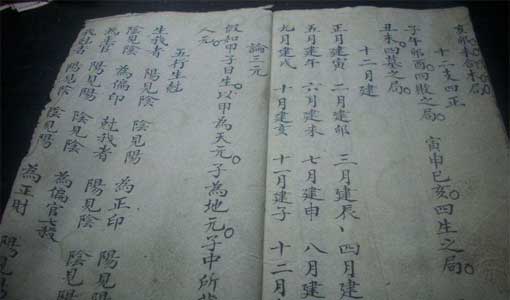 十二支四正
子午卯酉四敗之局。寅申巳亥。四生之局。
丑未四墓之局。
十二月建
正月建寅 二月建卯 三月建辰、四月建
五月建午 六月建未 七月建申 八月建
九月建戌 十月建亥 十一月建子 十二月
論三元
假如甲子日生。以甲為天元。子為地元。子中所
人元。
五行生尅
生我者 陽見陰 陰見陽 為正印 陽見陽
陰見陰 為偏印 尅我者 陽見陰 陰見陽
為正官 陽見陽 陰見陰 為偏官七殺
我尅者 陽見陰 陰見陽 為正財 陽見